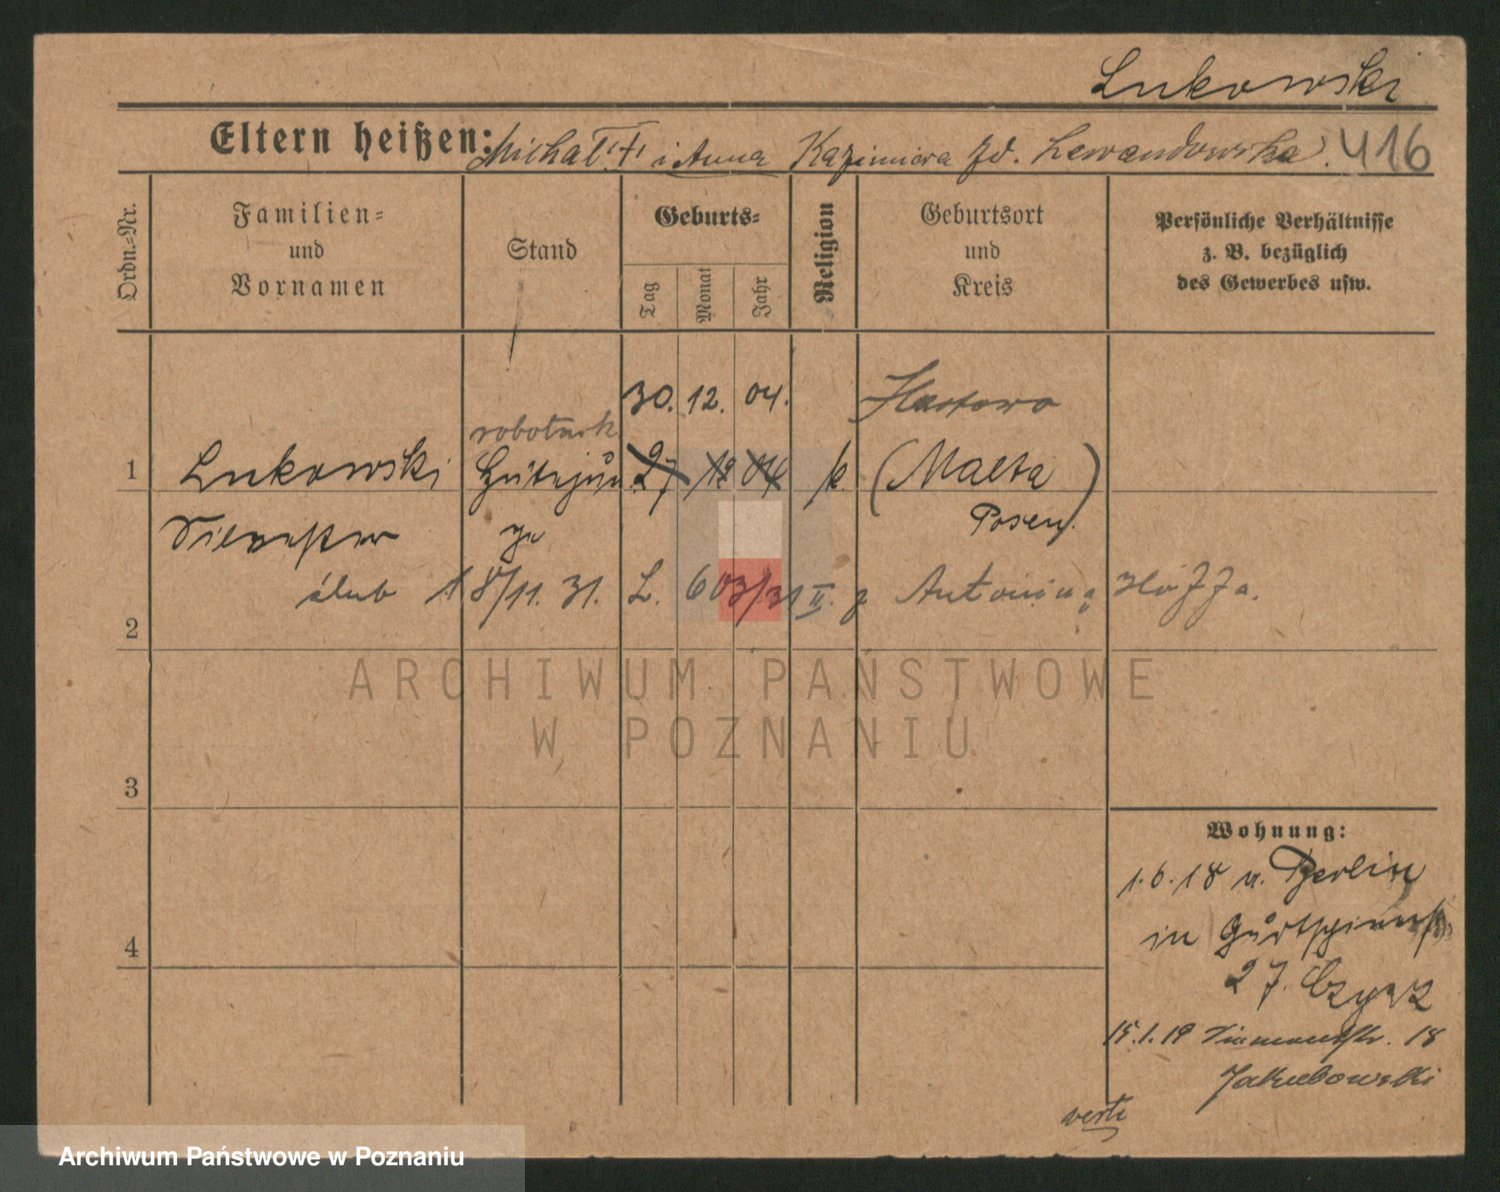 Lukowski
Eltern heißen: Michał (†) i Anna Kazimiera zd. Lewandowska. 416
Ordn.-Nr.
Familien=
und
Vornamen
Stand
Geburts=
Tag
Monat
Jahr
Religion
Geburtsort
und
Kreis
Persönliche Verhältnisse
z. B. bezüglich
des Gewerbes usw.
30. 12. 04.
robotnik
1 Lukowski 27 12 04 k. (Malta)
Posen.
ślub 18/11. 31. L. 603/31 II. z Antoniną
2
3
4
Wohnung:
1.6.18 v. Berlin
in
27.
15.1.19 18
Jakubowski
verte
ARCHIWUM PAŃSTWOWE
W POZNANIU
Archiwum Państwowe w Poznaniu